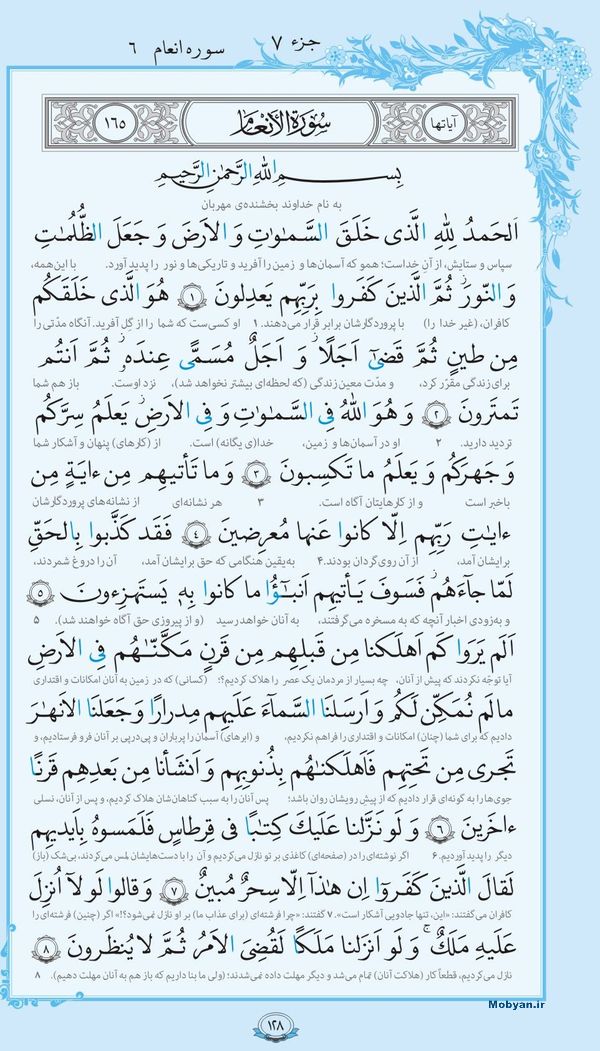 جزء ۷ سوره انعام ۶
آیاتها سُورَةُ الأَنعَام ۱۶۵
بِسمِ اللهِ الرَّحمٰنِ الرَّحیمِ
به نام خداوند بخشنده‌ی مهربان
اَلحَمدُ لِلّٰهِ الَّذی خَلَقَ السَّمٰوٰتِ وَ الاَرضَ وَ جَعَلَ الظُّلُمٰتِ
سپاس و ستایش، از آنِ خداست؛ همو که آسمان‌ها و زمین را آفرید و تاریکی‌ها و نور را پدید آورد. با این‌همه،
وَ النّورَ ثُمَّ الَّذینَ کَفَروا بِرَبِّهِم یَعدِلونَ ﴿۱﴾ هُوَ الَّذی خَلَقَکُم
کافران، (غیر خدا را) با پروردگارشان برابر قرار می‌دهند. ۱ او کسی‌ست که شما را از گِل آفرید. آنگاه مدّتی را
مِن طینٍ ثُمَّ قَضیٰ اَجَلًا وَ اَجَلٌ مُسَمًّی عِندَهٗ ثُمَّ اَنتُم
برای زندگی مقرّر کرد، و مدّت معین زندگی (که لحظه‌ای بیشتر نخواهد شد)، نزد اوست. باز هم شما
تَمتَرونَ ﴿۲﴾ وَ هُوَ اللهُ فِی السَّمٰوٰتِ وَ فِی الاَرضِ یَعلَمُ سِرَّکُم
تردید دارید. ۲ او در آسمان‌ها و زمین، خدا(ی یگانه) است. از (کارهای) پنهان و آشکار شما
وَ جَهرَکُم وَ یَعلَمُ ما تَکسِبونَ ﴿۳﴾ وَ ما تَأتیهِم مِن ءایَةٍ مِن
باخبر است و از کارهایتان آگاه است. ۳ هر نشانه‌ای از نشانه‌های پروردگارشان
ءایٰتِ رَبِّهِم اِلّا کانوا عَنها مُعرِضینَ ﴿۴﴾ فَقَد کَذَّبوا بِالحَقِّ
برایشان آمد، از آن روی‌گردان بودند.۴ به‌یقین هنگامی که حق برایشان آمد، آن را دروغ شمردند،
لَمّا جاءَهُم فَسَوفَ یَأتیهِم اَنبٰؤُا ما کانوا بِهٖ یَستَهزِءونَ ﴿۵﴾
و به‌زودی اخبار آنچه که به مسخره می‌گرفتند، به آنان خواهد رسید (و از پیروزی حق آگاه خواهند شد). ۵
اَلَم یَرَوا کَم اَهلَکنا مِن قَبلِهِم مِن قَرنٍ مَکَّنّٰهُم فِی الاَرضِ
آیا توجّه نکردند که پیش از آنان، چه بسیار از مردمان یک عصر را هلاک کردیم؟؛ (کسانی) که در زمین به آنان امکانات و اقتداری
ما لَم نُمَکِّن لَکُم وَ اَرسَلنَا السَّماءَ عَلَیهِم مِدرارًا وَ جَعَلنَا الاَنهٰرَ
دادیم که برای شما (چنان) امکانات و اقتداری را فراهم نکردیم، و (ابرهای) آسمان را پرباران و پی‌درپی بر آنان فرو فرستادیم، و
تَجری مِن تَحتِهِم فَاَهلَکنٰهُم بِذُنوبِهِم وَ اَنشَأنا مِن بَعدِهِم قَرنًا
جوی‌ها را به گونه‌ای قرار دادیم که از پیش رویشان روان باشد؛ پس آنان را به سبب گناهان‌شان هلاک کردیم، و پس از آنان، نسلی
ءاخَرینَ ﴿۶﴾ وَ لَو نَزَّلنا عَلَیکَ کِتٰبًا فی قِرطاسٍ فَلَمَسوهُ بِاَیدیهِم
دیگر را پدید آوردیم. ۶ اگر نوشته‌ای را در (صفحه‌ای) کاغذی بر تو نازل می‌کردیم و آن را با دست‌هایشان لمس می‌کردند، بی‌شک (باز)
لَقالَ الَّذینَ کَفَروا اِن هٰذا اِلّا سِحرٌ مُبینٌ ﴿۷﴾ وَ قالوا لَولا اُنزِلَ
کافران می‌گفتند: «این، تنها جادویی آشکار است». ۷ گفتند: «چرا فرشته‌ای (برای عذاب ما) بر او نازل نمی‌شود؟!» اگر (چنین) فرشته‌ای را
عَلَیهِ مَلَکٌ وَ لَو اَنزَلنا مَلَکًا لَقُضِیَ الاَمرُ ثُمَّ لا یُنظَرونَ ﴿۸﴾
نازل می‌کردیم، قطعاً کار (هلاکت آنان) تمام می‌شد و دیگر مهلت داده نمی‌شدند؛ (ولی ما بنا داریم که باز هم به آنان مهلت دهیم). ۸
Mobyan.ir
۱۲۸